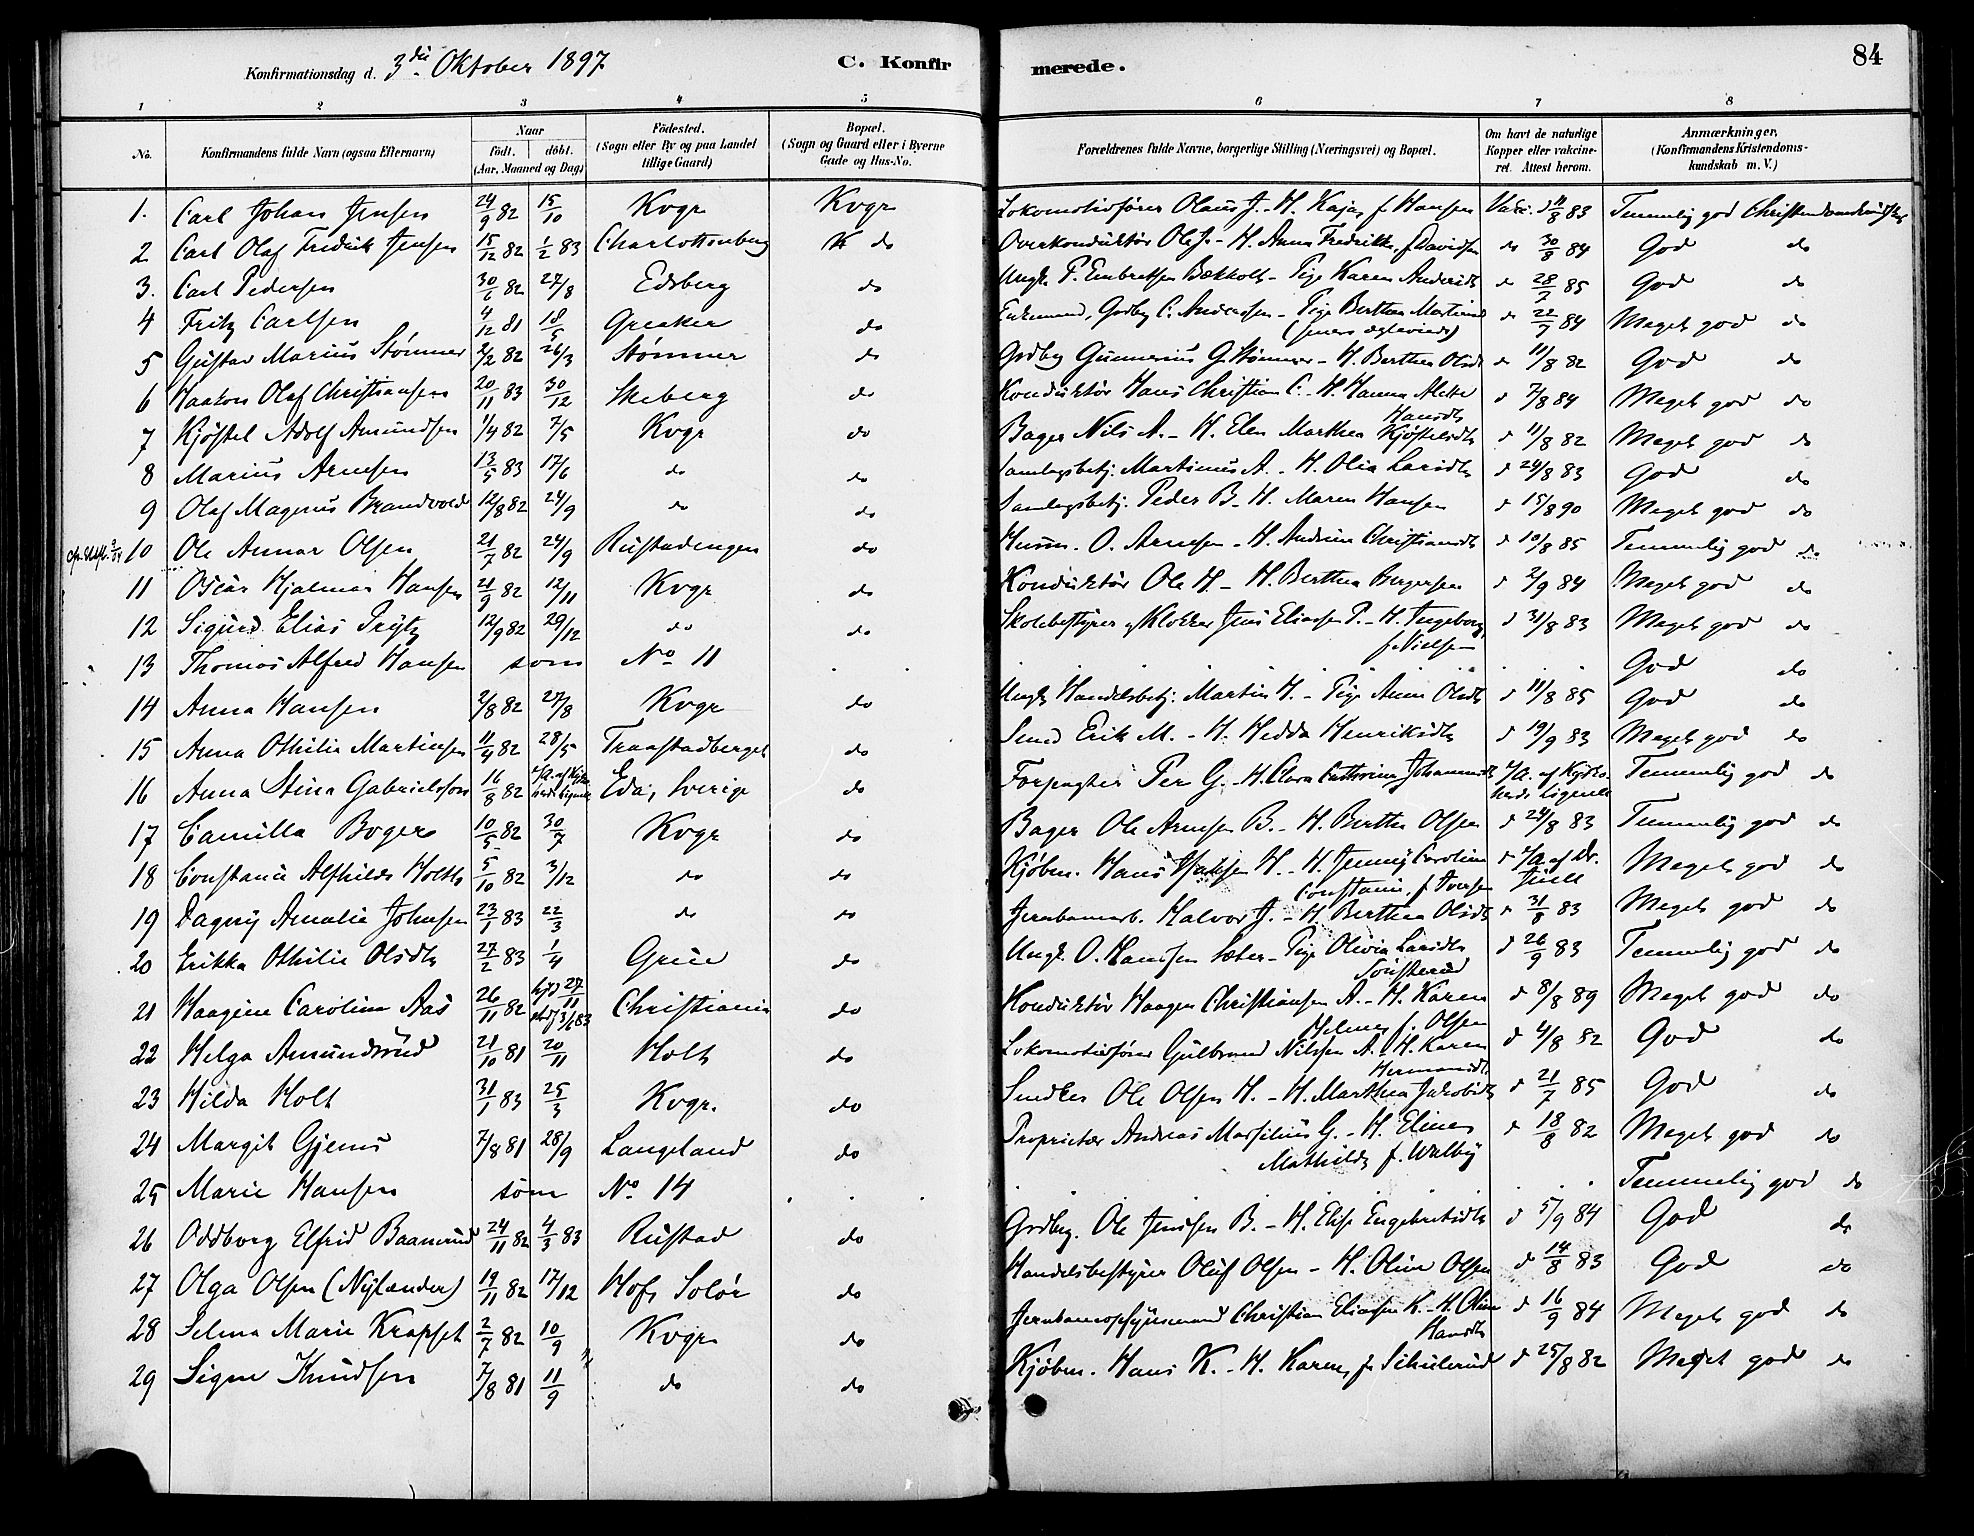 Konfirmationsdag d. 3die Oktober 1897 C. Konfirmerede. 84
1 2 3 4 5 6 7 8
No. Konfirmandens fulde Navn (ogsaa Efternavn) Naar födt. döbt. (Aar, Maaned og Dag) Födested. (Sogn eller By og paa Landet tillige Gaard) Bopæl. (Sogn og Gaard eller i Byerne Gade og Hus-No. Forældrenes fulde Navne, borgerlige Stilling (Næringsvei) og Bopæl. Om havt de naturlige Kopper eller vakcineret. Attest herom. Anmærkninger. (Konfirmandens Kristendomskundskab m. V.)
1. Carl Johan Jensen 24/9 82 15/10 Kvgr Kvgr Lokomotivförer Olaus J. - H. Kaja f. Hansen Vacc. d 11/8 83 Temmelig god Christendomskundskab
2 Carl Olaf Fredrik Jensen 15/12 82 1/2 83 Charlottenberg K do Overkonduktör Ole J. - H. Anna Fredrikke f. Davidsen do 30/8 84 God do
3. Carl Pedersen 30/6 82 27/8 Edsberg do Ungk. P. Embretsen Bækholt - Pige Karen Andersdt d 28/7 85 God do
4 Fritz Carlsen 4/12 81 18/5 Greaker do Enkemand, Gbrbg C. Andersen - Pige Berthea Martinsd (senere ægteviede) d 22/9 84 Meget god do
5 Gustav Marius Stømner 2/2 82 26/3 Stømner do Grdbrg Gunnerius G. Stømner - H. Berthea Olsdt d 11/8 82 God do
6 Haakon Olaf Christiansen 20/11 83 30/12 Skeberg do Konduktör Hans Christian C. - H. Hanna Alette Hansdt d 7/8 84 Meget god do
7 Kjöstel Adolf Amundsen 1/4 82 7/5 Kvgr do Bager Nils A. - H. Elen Marthea Kjöstelsdt d 11/8 82 Meget god do
8 Marius Arnesen 13/5 83 17/6 do do Samlagsbetj. Martinus A. - H. Olia Larsdt d 24/8 83 God do
9 Olaf Magnus Brandvold 12/8 82 24/9 do do Samlagsbetj. Peder B. - H. Maren Hansen d 15/8 90 Meget god do
10 Ole Annar Olsen 21/7 82 24/9 Rustadengen do Husm. O. Arnesen - H. Andrine Christiansdt d 10/8 85 Temmelig god do
11 Oscar Hjalmar Hansen 21/9 82 12/11 Kvgr do Konduktör Ole H - H. Berthea Bergersen d 2/9 84 Meget god do
12 Sigurd Elias Prytz 12/9 82 29/12 do do Skolebestyrer & Klokker Jens Eliasen P. - H. Ingeborg f. Nielsen d 31/8 83 Meget god do
13 Thomas Alfred Hansen som No 11 . . . . . God do
14 Anna Hansen 2/8 82 27/8 Kvgr do Ungk. Handelsbetj. Martin H. - Pige Anne Olsdt d 11/8 85 God do
15 Anna Othilie Martinsen 11/4 82 28/5 Traastadberget do Smed Erik M. - H. Hedda Henriksdt d 19/9 83 Meget god do
16 Anna Stina Gabrielsson 16/8 82 Eda, Sverige do Forpagter Per G. - H. Clara Cathrina Johannesdt Temmelig god do
17 Camilla Boger 10/5 82 30/7 Kvgr do Bager Ole Arnesen B. - H. Berthe Olsen d 24/8 83 Temmelig god do
18 Constance Alfhilde Holth 5/10 82 3/12 do do Kjöbm. Hans Isaksen H. - H. Jenny Caroline Constance f. Iversen d s/A. af Dr. Thiele Meget god do
19 Dagny Amalie Johnsen 23/1 83 22/3 do do Jernbanearb. Halvor J. - H. Berthea Olsdt d 31/8 83 Meget god do
20 Erikka Othilie Olsdt 27/2 83 1/4 Grue do Ungk. O. Hanssen Sæter - Pige Olivia Larsdt d 26/9 83 Temmelig god do
21 Haagine Caroline Aas 26/11 82 hjd 27/11 Christiania do Konduktör Haagen Christiansen A. - H. Karen f. Olsen d 8/8 89 Meget god do
22 Helga Amundsrud 21/10 81 20/11 Holt do Lokomotivförer Gulbrand Nilsen A. - H. Karen Hermansdt d 4/8 82 God do
23 Hilda Holt 31/1 83 25/3 Kvgr. do Snedker Ole Olsen H. - H. Marthea Jakobsdt d 21/7 85 God do
24 Margit Gjems 7/8 81 28/9 Langeland do Proprietær Andreas Marsilius G. - H. Elines Mathilde f. Walby d 18/8 82 Meget god do
25 Marie Hansen som No 14 . . . . . Temmelig god do
26 Oddborg Elfrid Baanerud 24/11 82 4/3 83 Rustad do Grdbrg. Ole Jensen B. - H. Elise Engebretsdt d 5/9 84 God do
27 Olga Olsen (Nylænder) 19/11 82 17/12 Hof, Solör do Handelsbestyrer Oluf Olsen - H. Oline Olsen d 14/8 83 God do
28 Selma Marie Krapfet 2/7 82 10/9 Kvgr do Christian Eliasen K. - H. Oline Hansdt d 16/9 84 Meget god do
29 Signe Knudsen 7/8 81 11/9 do do Kjöbm. Hans K. - H. Karen f. Schulerud d 25/8 82 Meget god do